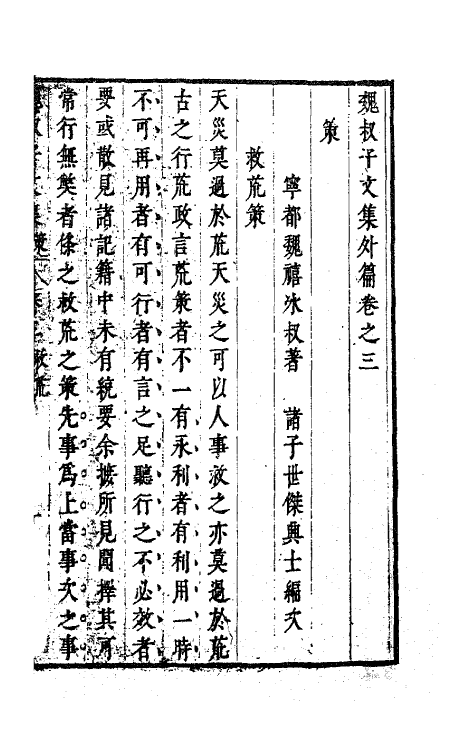 魏叔子文集外篇卷之三
策
寧都魏禧冰叔著　諸子世傑興士編次
救荒策
天災莫過於荒天災之可以人事救之亦莫過於荒
古之行荒政言荒策者不一有永利者有利用一時
不可再用者有可行者有言之足聽行之不必效者
要或散見諸記籍中未有統要余摭所見聞擇其可
常行無獘者條之救荒之策先事爲上當事次之事